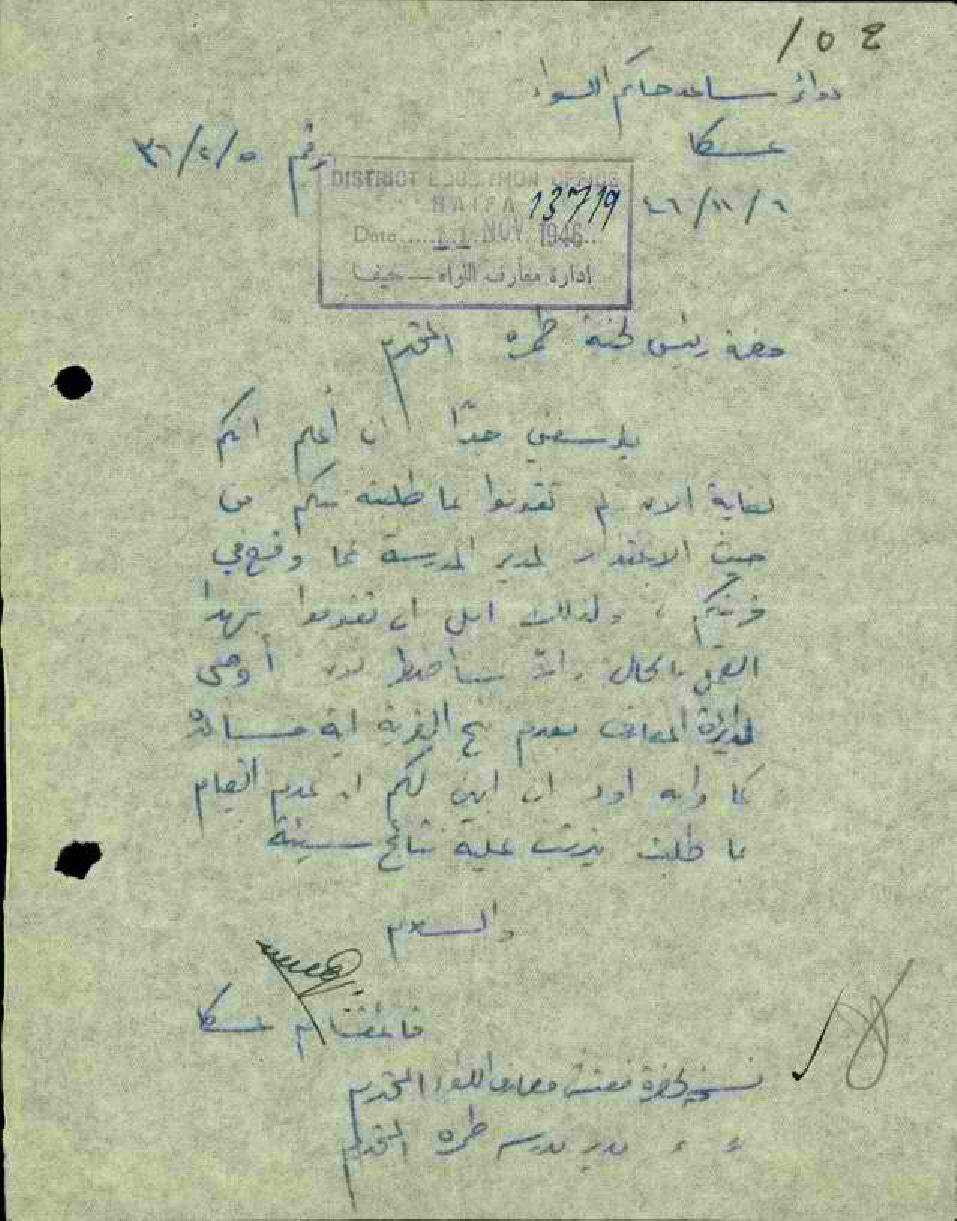 دوائر مساعد حاكم اللواء
عكا
رقم ٣٦/٢/٥
٦/١١/٤٦
DISTRICT EDUCATION OFFICE
HAIFA 13719
Date 11 NOV 1946
ادارة معارف اللواء — حيفا
حضرة رئيس لجنة طمره المحترم
يؤسفني جدًا ان أعلم انكم
لغاية الان لم تقوموا بما طلبته منكم من
حيث الاعتذار لمدير المدرسة عما وقع في
قريتكم ، ولذلك امل ان تقوموا بهذا
بالحال سأضطر لان أوصي
لدائرة المعارف بعدم منح القرية اية مساعدة
كما وانه اود ان ابين لكم ان عدم القيام
بما طلبت يترتب عليه نتائج سيئة
والسلام
قائمقام عكا
نسخة لحضرة مفتش معارف اللواء المحترم
ء ء مدير مدرسة طمره المحترم